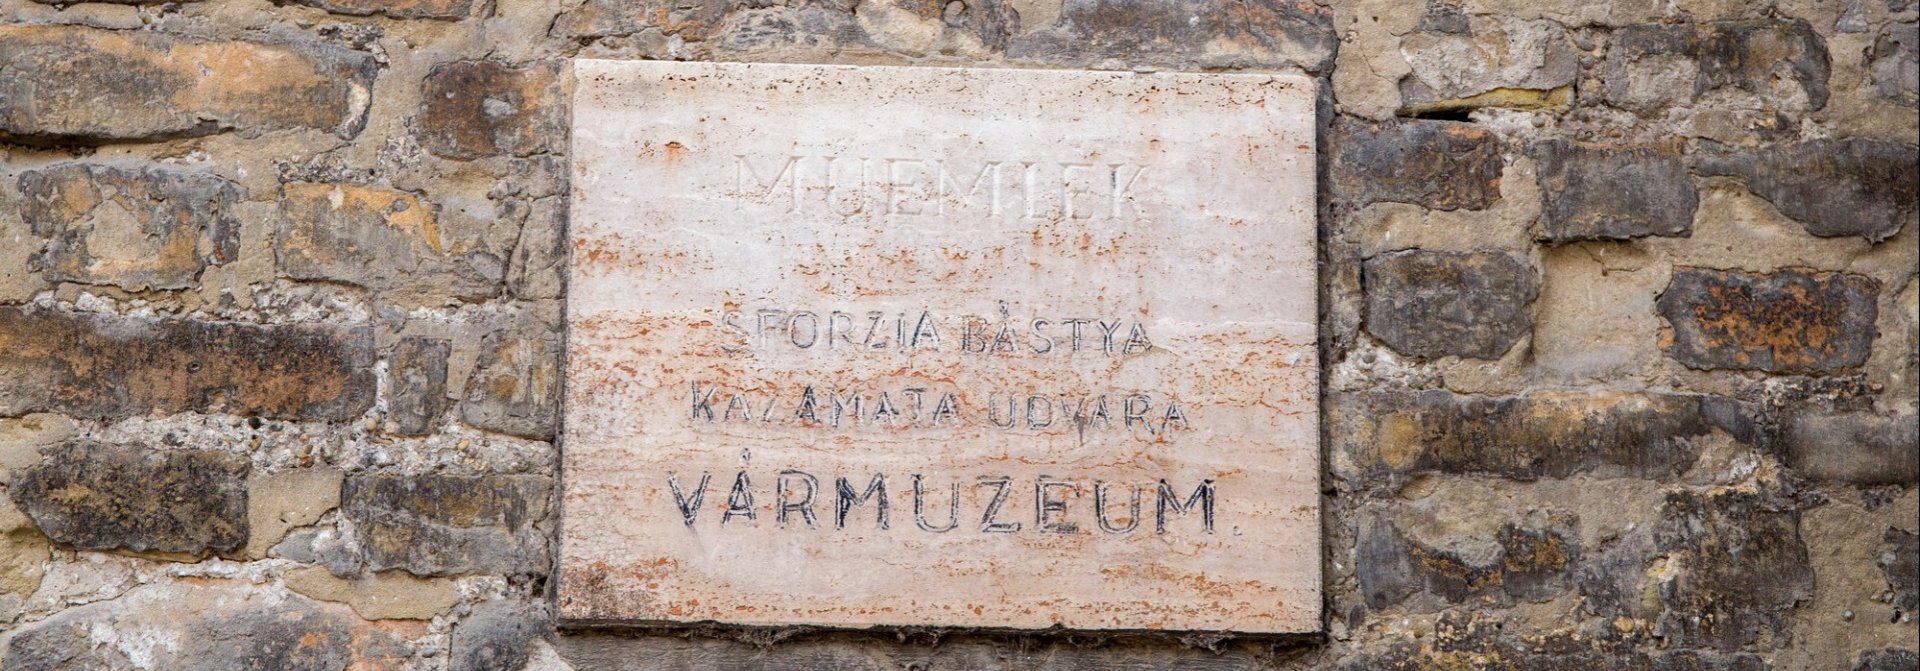 MUEMLEK
SFORZIA BÁSTYA
KAZAMATA UDVARA
VÁRMUZEUM.